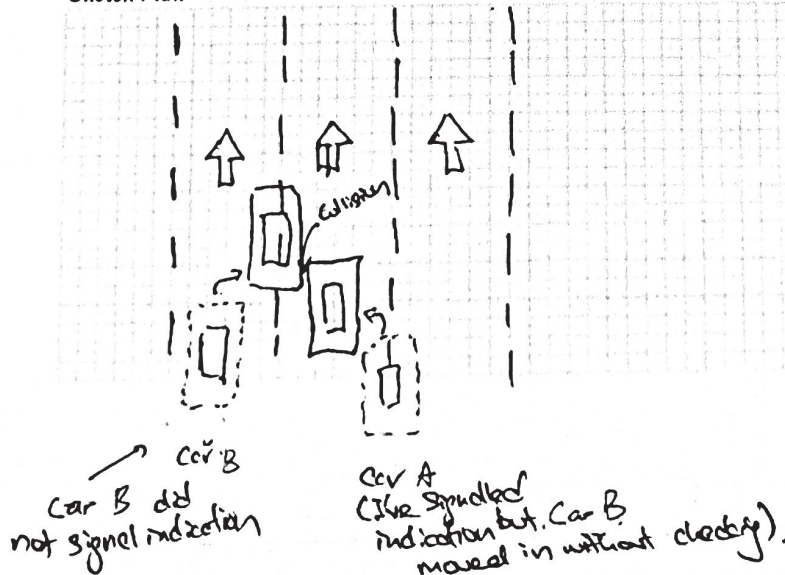 Collision
Car B
Car B did
not signal indication
Car A
(I've signalled
indication but. Car B
moved in without checking).